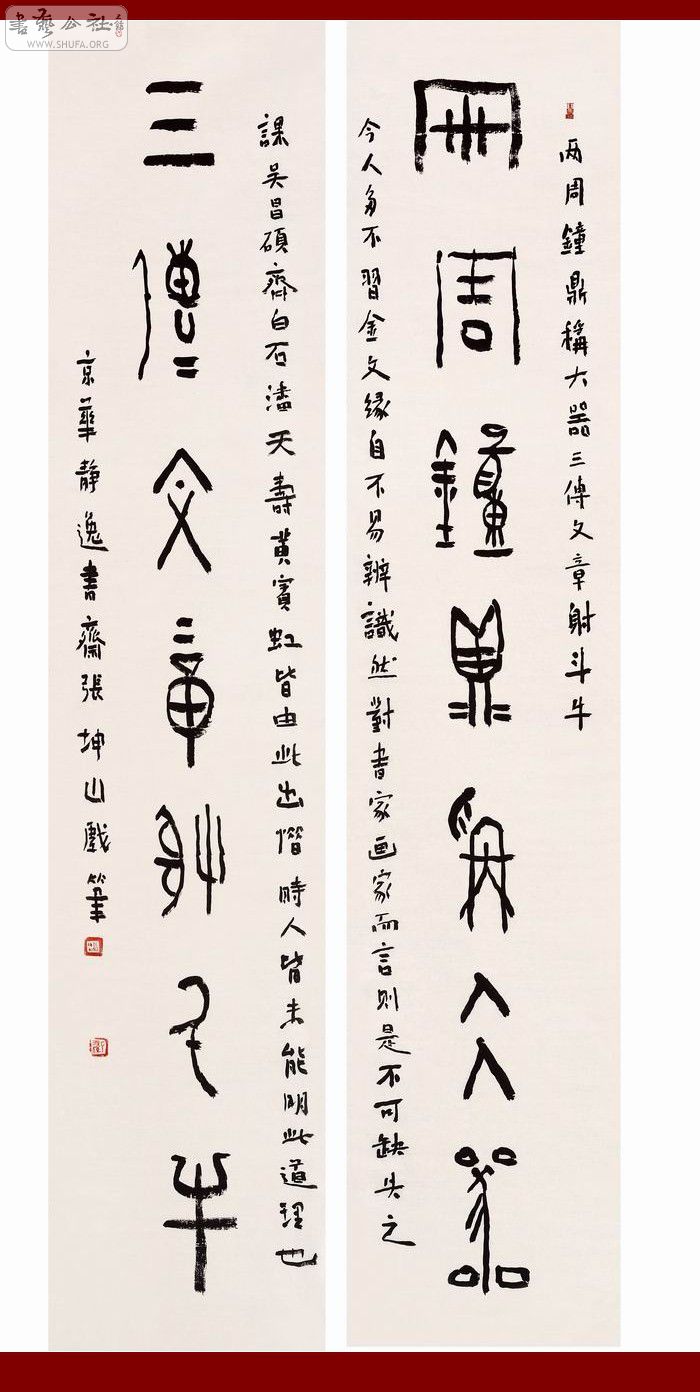 書藝公社
WWW.SHUFA.ORG
两周鐘鼎稱大器三傳文章射斗牛
兩周鐘鼎稱大器
今人多不習金文缘自不易辨識然對書家画家而言則是不可缺失之
課吴昌碩齊白石潘天壽黄賓虹皆由此出惜時人皆未能明此道理也
三傳文章射斗牛
京華静逸書齋張坤山戲筆